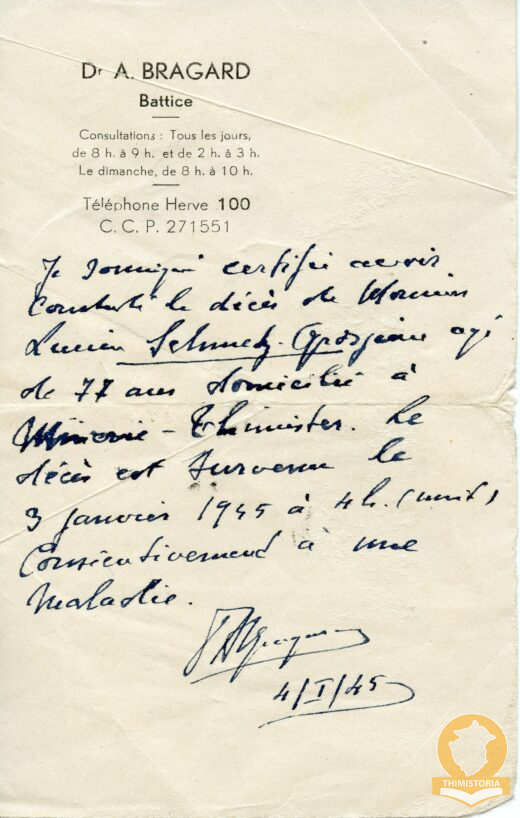 Dr A. BRAGARD
Battice
Consultations : Tous les jours,
de 8 h. à 9 h. et de 2 h. à 3 h.
Le dimanche, de 8 h. à 10 h.
Téléphone Herve 100
C. C. P. 271551
Je soussigné certifie avoir
Constaté le décès de Monsieur
Lucien Schmetz-Grosjean agé
de 77 ans domicilié à
- Thimister. Le
décès est survenu le
3 janvier 1945 à 4h. (nuit)
Consécutivement à une
Maladie.
4/I/45
THIMISTORIA